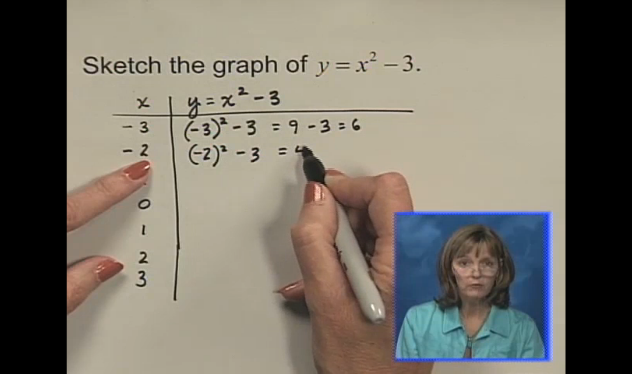 Sketch the graph of y = x² − 3.
x y = x² − 3
−3 (−3)² − 3 = 9 − 3 = 6
−2 (−2)² − 3 = 4
0
1
2
3